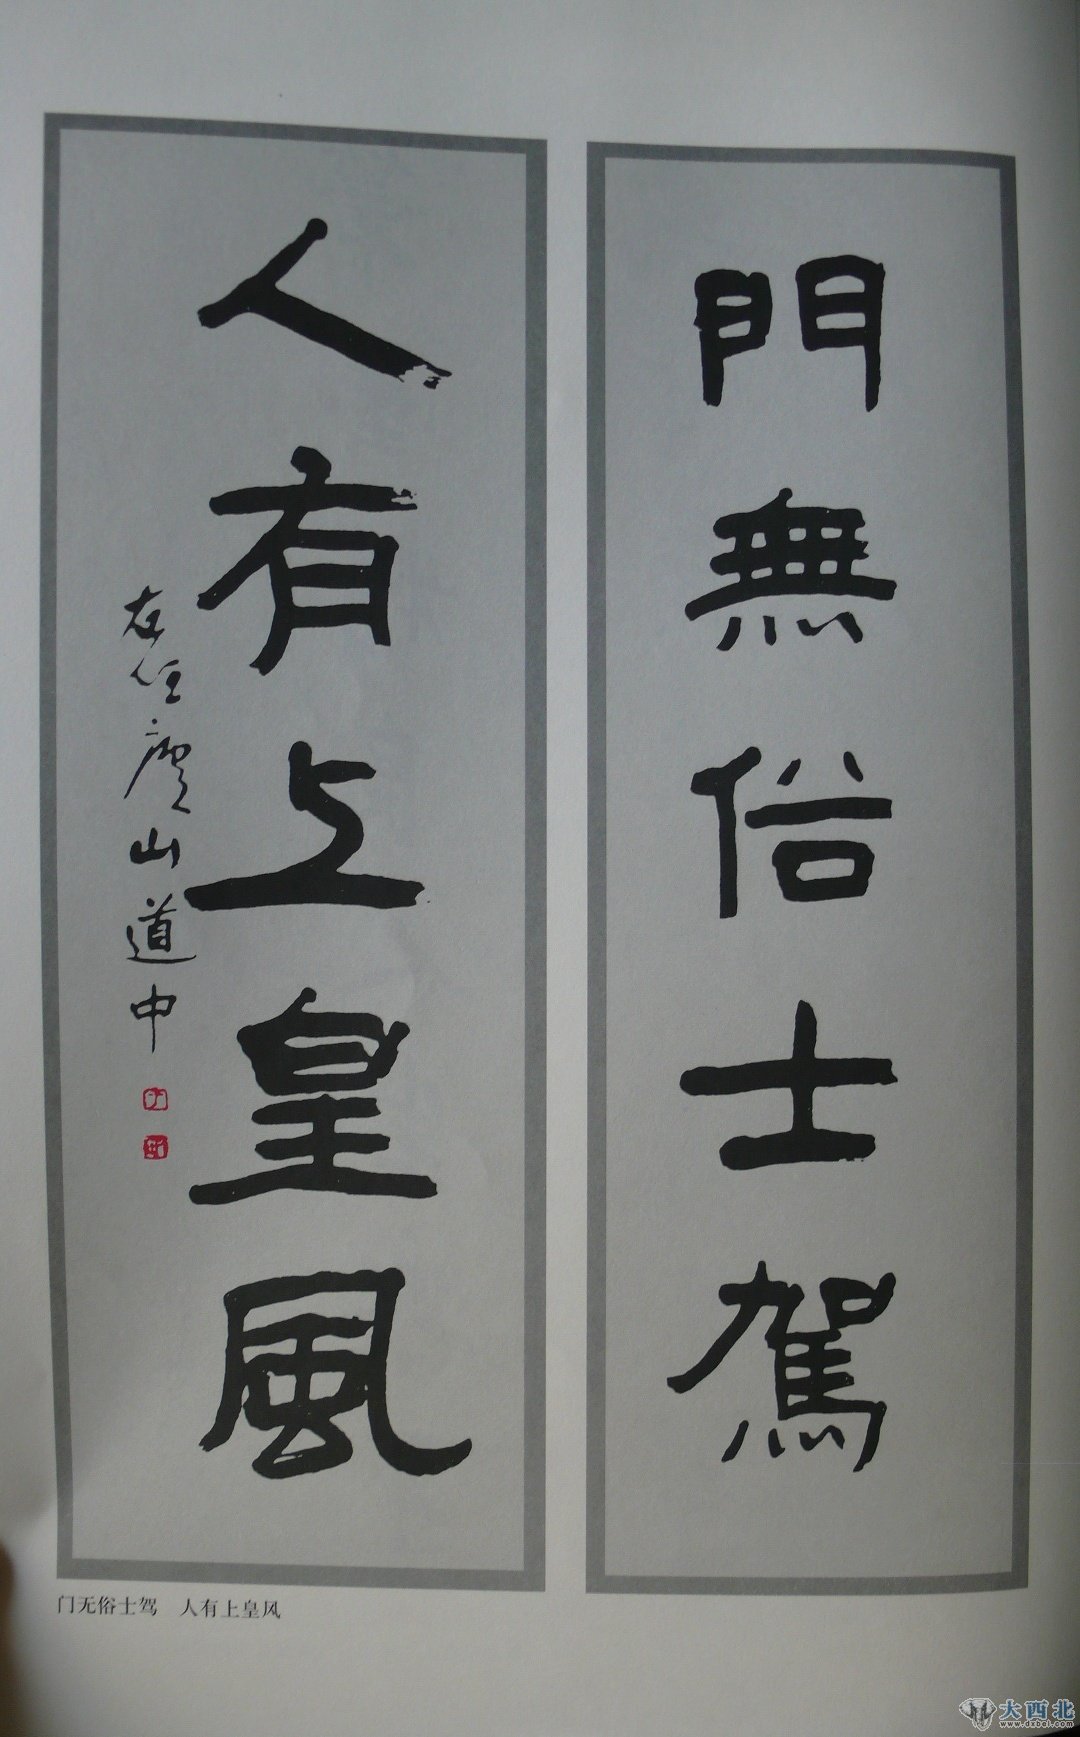 門無俗士駕
人有上皇風
山道中
门无俗士驾 人有上皇风
大西北
www.dxbei.com